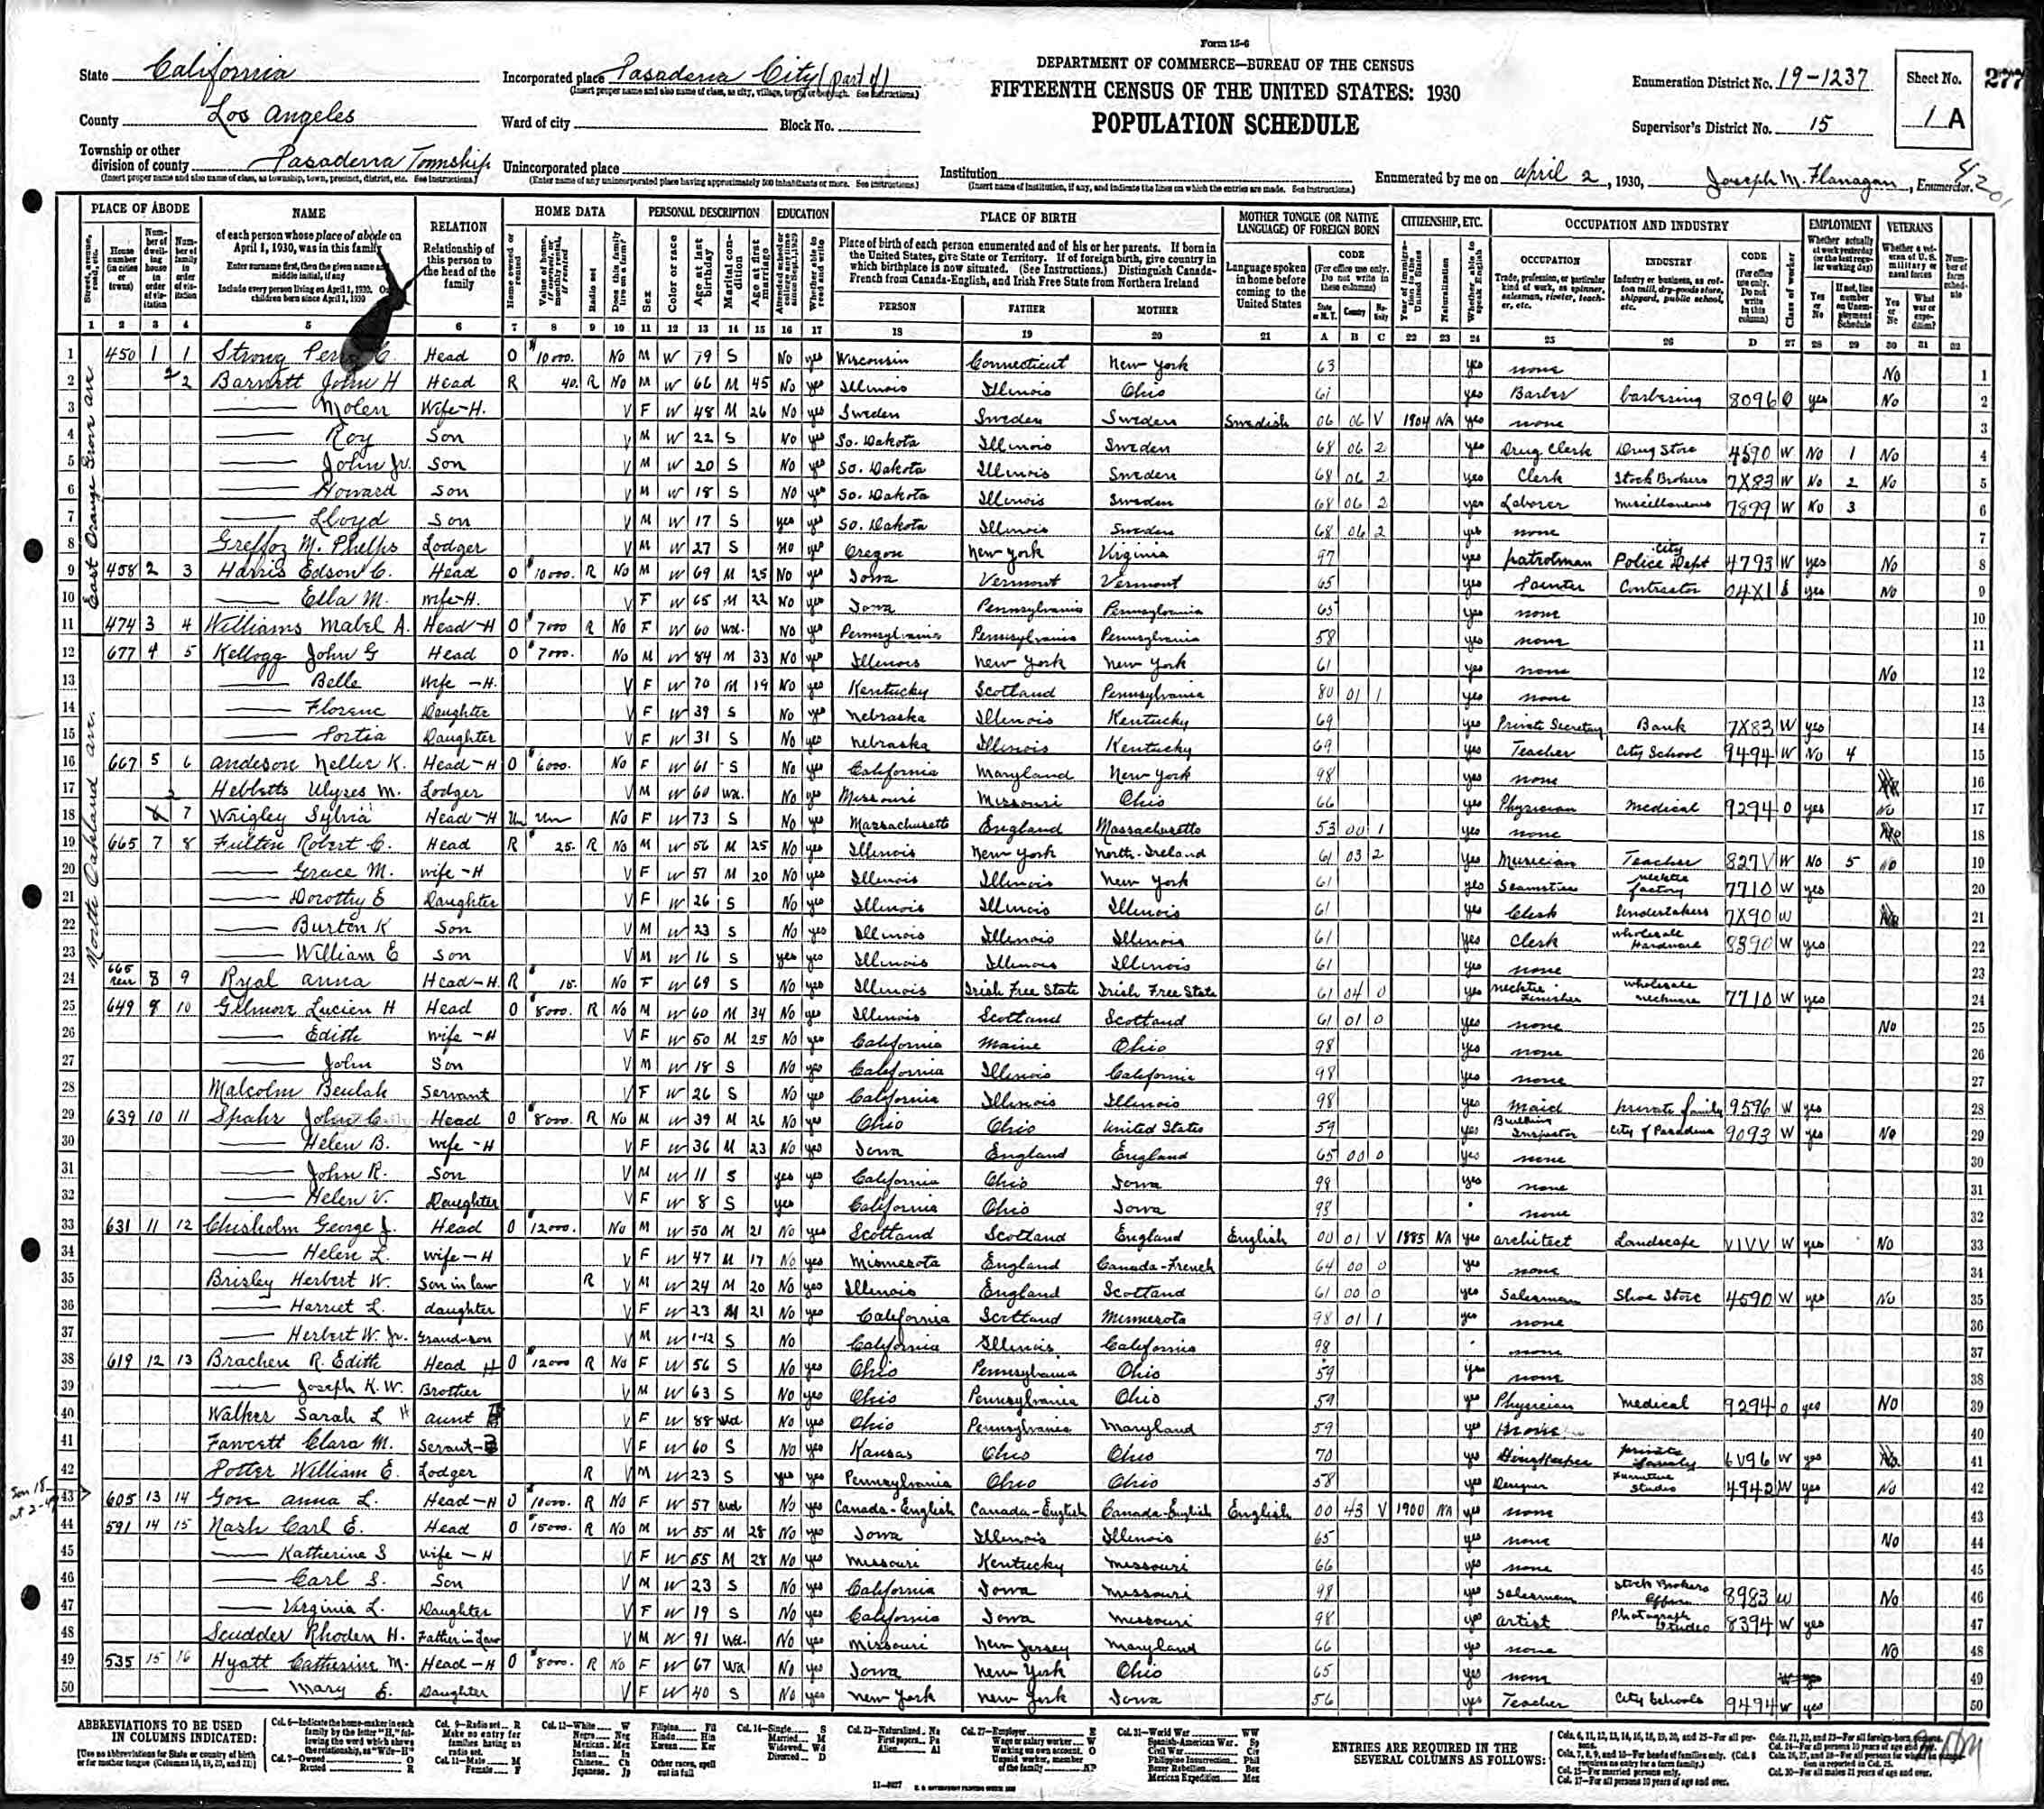 Form 15-6
State California
County Los Angeles
Township or other division of county Pasadena Township
(Insert proper name and also name of class, as township, town, precinct, district, etc. See instructions.)
Incorporated place Pasadena City (part of)
(Insert proper name and also name of class, as city, village, town, or borough. See instructions.)
Ward of city
Block No.
Unincorporated place
(Enter name of any unincorporated place having approximately 500 inhabitants or more. See instructions.)
DEPARTMENT OF COMMERCE—BUREAU OF THE CENSUS
FIFTEENTH CENSUS OF THE UNITED STATES: 1930
POPULATION SCHEDULE
Institution
(Insert name of institution, if any, and indicate the lines on which the entries are made. See instructions.)
Enumeration District No. 19-1237
Supervisor's District No. 15
Sheet No. 1 A
277
Enumerated by me on April 2, 1930, Joseph M. Flanagan, Enumerator.
PLACE OF ABODE NAME RELATION HOME DATA PERSONAL DESCRIPTION EDUCATION PLACE OF BIRTH MOTHER TONGUE (OR NATIVE LANGUAGE) OF FOREIGN BORN CITIZENSHIP, ETC. OCCUPATION AND INDUSTRY EMPLOYMENT VETERANS
of each person whose place of abode on April 1, 1930, was in this family
Enter surname first, then the given name and middle initial, if any
Include every person living on April 1, 1930. Omit children born since April 1, 1930
Relationship of this person to the head of the family
Place of birth of each person enumerated and of his or her parents. If born in the United States, give State or Territory. If of foreign birth, give country in which birthplace is now situated. (See Instructions.) Distinguish Canada-French from Canada-English, and Irish Free State from Northern Ireland
PERSON FATHER MOTHER
Language spoken in home before coming to the United States
CODE OCCUPATION INDUSTRY CODE
1 2 3 4 5 6 7 8 9 10 11 12 13 14 15 16 17 18 19 20 21 A B C 22 23 24 25 26 D 27 28 29 30 31 32
East Orange Grove av
North Oakland ave.
1 450 1 1 Strong C. Head O $10000. No M W 79 S No yes Wisconsin Connecticut New York 63 yes none No 1
2 2 2 Barnett John H Head R 40. R No M W 66 M 45 No yes Illinois Illinois Ohio 61 yes Barber barbering 8096 O yes No 2
3 Molen Wife-H. V F W 48 M 26 No yes Sweden Sweden Sweden Swedish 06 06 V 1904 NA yes none 3
4 Roy Son V M W 22 S No yes So. Dakota Illinois Sweden 68 06 2 yes Drug Clerk Drug Store 4590 W No 1 No 4
5 John Jr. Son V M W 20 S No yes So. Dakota Illinois Sweden 68 06 2 yes Clerk Stock Brokers 7X83 W No 2 No 5
6 Howard Son V M W 18 S No yes So. Dakota Illinois Sweden 68 06 2 yes Laborer miscellaneous 7899 W No 3 6
7 Lloyd Son V M W 17 S yes yes So. Dakota Illinois Sweden 68 06 2 yes none 7
8 M. Phelps Lodger V M W 27 S No yes Oregon New York Virginia 97 yes patrolman City Police Dept 4793 W yes No 8
9 458 2 3 Harris Edson C. Head O $10000. R No M W 69 M 25 No yes Iowa Vermont Vermont 65 yes Painter Contractor 04X1 yes No 9
10 Ella M. Wife-H. V F W 65 M 22 No yes Iowa Pennsylvania Pennsylvania 65 yes none 10
11 474 3 4 Williams Mabel A. Head-H O $7000 R No F W 60 Wd. No yes Pennsylvania Pennsylvania Pennsylvania 58 yes none 11
12 677 4 5 Kellogg John G Head O $7000. No M W 84 M 33 No yes Illinois New York New York 61 yes none No 12
13 Belle Wife-H. V F W 70 M 19 No yes Kentucky Scotland Pennsylvania 80 01 1 yes none 13
14 Florenc Daughter V F W 39 S No yes Nebraska Illinois Kentucky 69 yes Private Secretary Bank 7X83 W yes 14
15 Portia Daughter V F W 31 S No yes Nebraska Illinois Kentucky 69 yes Teacher City School 9494 W No 4 15
16 667 5 6 Andeson Nellie K. Head-H O $6000. No F W 61 S No yes California Maryland New York 98 yes none 16
17 Hebbetts Ulyses M. Lodger V M W 60 Wd. No yes Missouri Missouri Ohio 66 yes Physician Medical 9294 O yes No 17
18 7 Wrigley Sylvia Head-H Un Un No F W 73 S No yes Massachusetts England Massachusetts 53 00 1 yes none 18
19 665 7 8 Fulton Robert C. Head R $25. R No M W 56 M 25 No yes Illinois New York North. Ireland 61 03 2 yes Musician Teacher 827V W No 5 No 19
20 Grace M. Wife-H V F W 57 M 20 No yes Illinois Illinois New York 61 yes Seamstress necktie factory 7710 W yes 20
21 Dorothy E Daughter V F W 26 S No yes Illinois Illinois Illinois 61 yes Clerk Undertakers 7X90 W 21
22 Burton K Son V M W 23 S No yes Illinois Illinois Illinois 61 yes Clerk Wholesale Hardware 8390 W yes 22
23 William E Son V M W 16 S yes yes Illinois Illinois Illinois 61 yes none 23
24 665 rear 8 9 Ryal Anna Head-H. R $15. No F W 69 S No yes Illinois Irish Free State Irish Free State 61 04 0 yes necktie Finisher wholesale neckware 7710 W yes 24
25 649 9 10 Gilmore Lucien H Head O $8000. R No M W 60 M 34 No yes Illinois Scotland Scotland 61 01 0 yes none No 25
26 Edith Wife-H V F W 50 M 25 No yes California Maine Ohio 98 yes none 26
27 John Son V M W 18 S No yes California Illinois California 98 yes none 27
28 Malcolm Beulah Servant V F W 26 S No yes California Illinois Illinois 98 yes Maid private family 9596 W yes 28
29 639 10 11 Spahr John C. Head O $8000. R No M W 39 M 26 No yes Ohio Ohio United States 59 yes Building Inspector City of Pasadena 9093 W yes No 29
30 Helen B. Wife-H V F W 36 M 23 No yes Iowa England England 65 00 0 yes none 30
31 John R. Son V M W 11 S yes yes California Ohio Iowa 98 yes none 31
32 Helen V. Daughter V F W 8 S yes California Ohio Iowa 98 none 32
33 631 11 12 Chisholm George J. Head O $12000. No M W 50 M 21 No yes Scotland Scotland England English 00 01 V 1885 NA yes architect Landscape VIVV W yes No 33
34 Helen L. Wife-H V F W 47 M 17 No yes Minnesota England Canada-French 64 00 0 yes none 34
35 Brisley Herbert W. Son in law R V M W 24 M 20 No yes Illinois England Scotland 61 00 0 yes Salesman Shoe Store 4590 W yes No 35
36 Harriet L. daughter V F W 23 M 21 No yes California Scotland Minnesota 98 01 1 yes none 36
37 Herbert W. Jr. Grand-son V M W 1-12 S No California Illinois California 98 none 37
38 619 12 13 Bracken R. Edith Head H O $12000 R No F W 56 S No yes Ohio Pennsylvania Ohio 59 yes none 38
39 Joseph K. W. Brother V M W 63 S No yes Ohio Pennsylvania Ohio 59 yes Physician Medical 9294 O yes No 39
40 Walker Sarah L H aunt V F W 88 Wd No yes Ohio Pennsylvania Maryland 59 yes none 40
41 Fawcett Clara M. Servant V F W 60 S No yes Kansas Ohio Ohio 70 yes private family 6V96 W yes 41
42 Potter William E. Lodger R V M W 23 S yes yes Pennsylvania Ohio Ohio 58 yes Designer Furniture Studio 4942 W yes No 42
43 605 13 14 Gow Anna L. Head-H O $10000. R No F W 57 Wd No yes Canada-English Canada-English Canada-English English 00 43 V 1900 NA yes none 43
44 591 14 15 Nash Carl E. Head O $15000. R No M W 55 M 28 No yes Iowa Illinois Illinois 65 yes none No 44
45 Katherine S Wife-H V F W 55 M 28 No yes Missouri Kentucky Missouri 66 yes none 45
46 Carl S. Son V M W 23 S No yes California Iowa Missouri 98 yes Salesman Stock Brokers Office 8983 W No 46
47 Virginia L. Daughter V F W 19 S No yes California Iowa Missouri 98 yes artist Photograph Studio 8394 W yes 47
48 Scudder Rhoden H. Father in Law V M W 91 Wd. No yes Missouri New Jersey Maryland 66 yes none No 48
49 535 15 16 Hyatt Catherine M. Head-H O $8000. R No F W 67 Wd No yes Iowa New York Ohio 65 yes none 49
50 Mary E. Daughter V F W 40 S No yes New York New York Iowa 56 yes Teacher City Schools 9494 W yes 50
ABBREVIATIONS TO BE USED IN COLUMNS INDICATED:
[Use no abbreviations for State or country of birth or for mother tongue (Columns 18, 19, 20, and 21)]
ENTRIES ARE REQUIRED IN THE SEVERAL COLUMNS AS FOLLOWS: